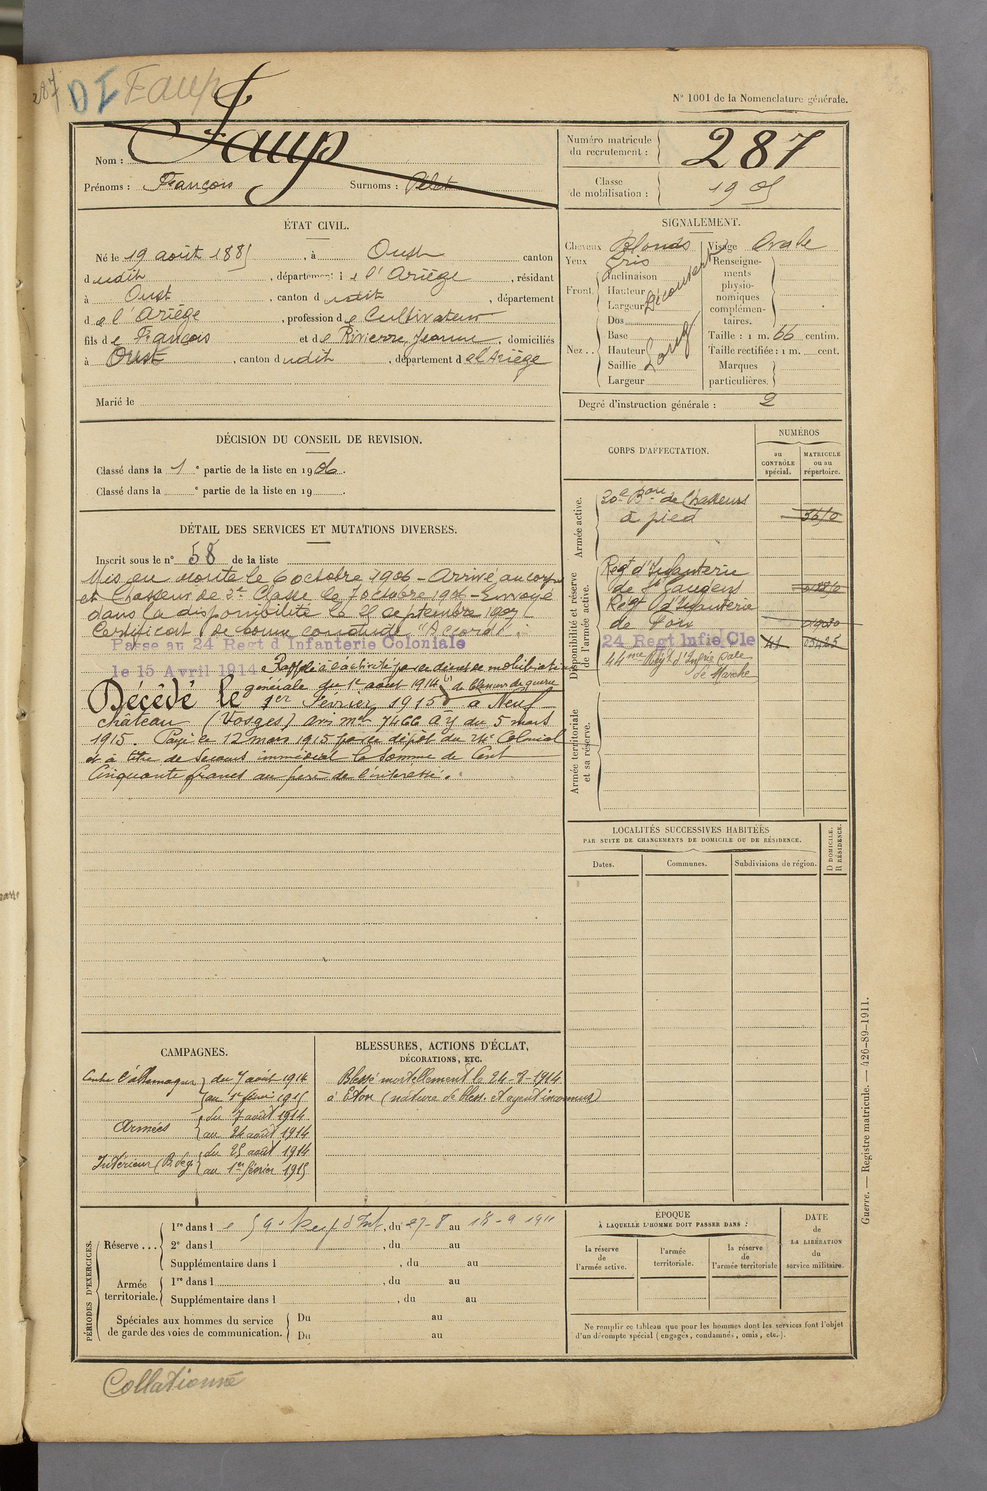 287 DI Faup
N° 1001 de la Nomenclature générale.
Nom : Faup
Prénoms : François Surnoms :
Numéro matricule du recrutement : 287
Classe de mobilisation : 1905
ÉTAT CIVIL.
Né le 19 août 1885, à Oust canton
dudit, département de l'Ariège, résidant
à Oust, canton dudit, département
de l'Ariège, profession de Cultivateur
fils de François et de Rivierre Jeanne, domiciliés
à Oust, canton dudit, département de l'Ariège
Marié le
SIGNALEMENT.
Cheveux Blonds Visage Ovale
Yeux Gris Renseignements physionomiques complémentaires.
Front. Inclinaison
Hauteur Découvert
Largeur
Nez.. Dos
Base
Hauteur Long
Saillie
Largeur
Taille : 1 m. 66 centim.
Taille rectifiée : 1 m. cent.
Marques particulières.
Degré d'instruction générale : 2
DÉCISION DU CONSEIL DE REVISION.
Classé dans la 1e partie de la liste en 1906.
Classé dans la e partie de la liste en 19 .
DÉTAIL DES SERVICES ET MUTATIONS DIVERSES.
Inscrit sous le n° 58 de la liste
Mis en route le 6 octobre 1906 - Arrivé au corps
et Chasseur de 2e Classe le 7 octobre 1906 - Envoyé
dans la disponibilité le septembre 190
Certificat de bonne conduite "Accordé".
Passé au 24 Regt d Infanterie Coloniale
le 15 Avril 1914 Rappelé à l'activité par décret de mobilisation
générale du 1er août 1914 de blessures de guerre
Décédé le 1er Février 1915 à Neuf
château (Vosges) avis mel 7466 du 5 mars
1915. Payé le 12 mars 1915 par le dépôt du 24e Colonial
et à titre de secours immédiat la somme de Cent
Cinquante francs au père de l'intéressé.
CORPS D'AFFECTATION.
NUMÉROS
au CONTRÔLE spécial.
MATRICULE ou au répertoire.
Armée active.
20e Bon de Chasseurs
à pied
Disponibilité et réserve de l'armée active.
Régt d'Infanterie
de St Gaudens
Régt d'Infanterie
de Foix
24 Regt Infie Cle
44me Régt d'Infrie Cale
de Marche
Armée territoriale et sa réserve.
LOCALITÉS SUCCESSIVES HABITÉES
PAR SUITE DE CHANGEMENTS DE DOMICILE OU DE RÉSIDENCE.
Dates. Communes. Subdivisions de région. D DOMICILE. R RÉSIDENCE.
CAMPAGNES.
Contre l'Allemagne du 7 août 1914
au 1er février 1915
Armées du 7 août 1914
au 24 août 1914
Intérieur du 25 août 1914
au 1er février 1915
BLESSURES, ACTIONS D'ÉCLAT,
DÉCORATIONS, ETC.
Blessé mortellement le 24-8-1914
à Eton (nature de bless. et agent inconnus)
PÉRIODES D'EXERCICES.
Réserve ... 1re dans le 59e Regt d'Inf, du 27-8 au 18-9 1911
2e dans l , du au
Supplémentaire dans l , du au
Armée territoriale. 1re dans l , du au
Supplémentaire dans l , du au
Spéciales aux hommes du service de garde des voies de communication. Du au
Du au
ÉPOQUE
À LAQUELLE L'HOMME DOIT PASSER DANS :
la réserve de l'armée active.
l'armée territoriale.
la réserve de l'armée territoriale
DATE de LA LIBÉRATION du service militaire.
Ne remplir ce tableau que pour les hommes dont les services font l'objet
d'un décompte spécial (engagés, condamnés, omis, etc.).
Guerre. — Registre matricule. — 426-89-1911.
Collationné